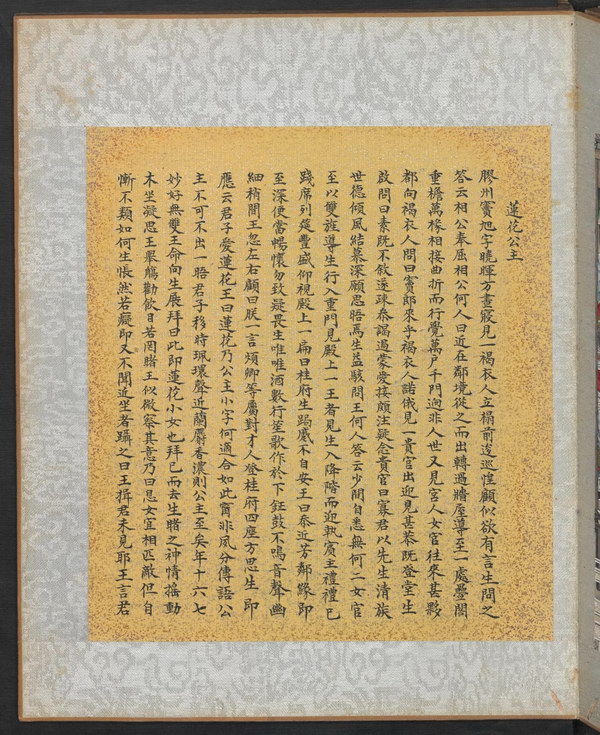 蓮花公主
膠州竇旭字曉暉方晝寢見一褐衣人立榻前逡巡惶顧似欲有言生問之
答云相公奉屈相公何人曰近在鄰境從之而出轉過牆屋導至一處疊閣
重檐萬椽相接曲折而行覺萬戶千門迥非人世又見宮人女官往來甚夥
都向褐衣人問曰竇郎來乎褐衣人諾俄見一貴官出迎見甚恭既登堂生
啟問曰素既不敘遂疎叅謁過蒙愛接頗注疑念貴官曰寡君以先生清族
世德傾風結慕深願思晤焉生益駭問王何人答云少間自悉無何二女官
至以雙旌導生行入重門見殿上一王者見生入降階而迎執賓主禮禮已
踐席列筵豐盛仰視殿上一扁曰桂府生跼蹙不自安王曰忝近芳鄰緣即
至深便當暢懷勿致疑畏生唯唯酒數行笙歌作於下鉦鼓不鳴音聲幽
細稍間王忽左右顧曰朕一言煩卿等屬對才人登桂府四座方思生即
應云君子愛蓮花王曰蓮花乃公主小字何適合如此寧非夙分傳語公
主不可不出一晤君子移時珮環聲近蘭麝香濃則公主至矣年十六七
妙好無雙王命向生展拜曰此即蓮花小女也拜已而去生睹之神情搖動
木坐凝思王舉觴勸飲目若罔睹王似微察其意乃曰息女宜相匹敵但自
慚不類如何生悵然若癡即又不聞近坐者躡之曰王揖君未見耶王言君